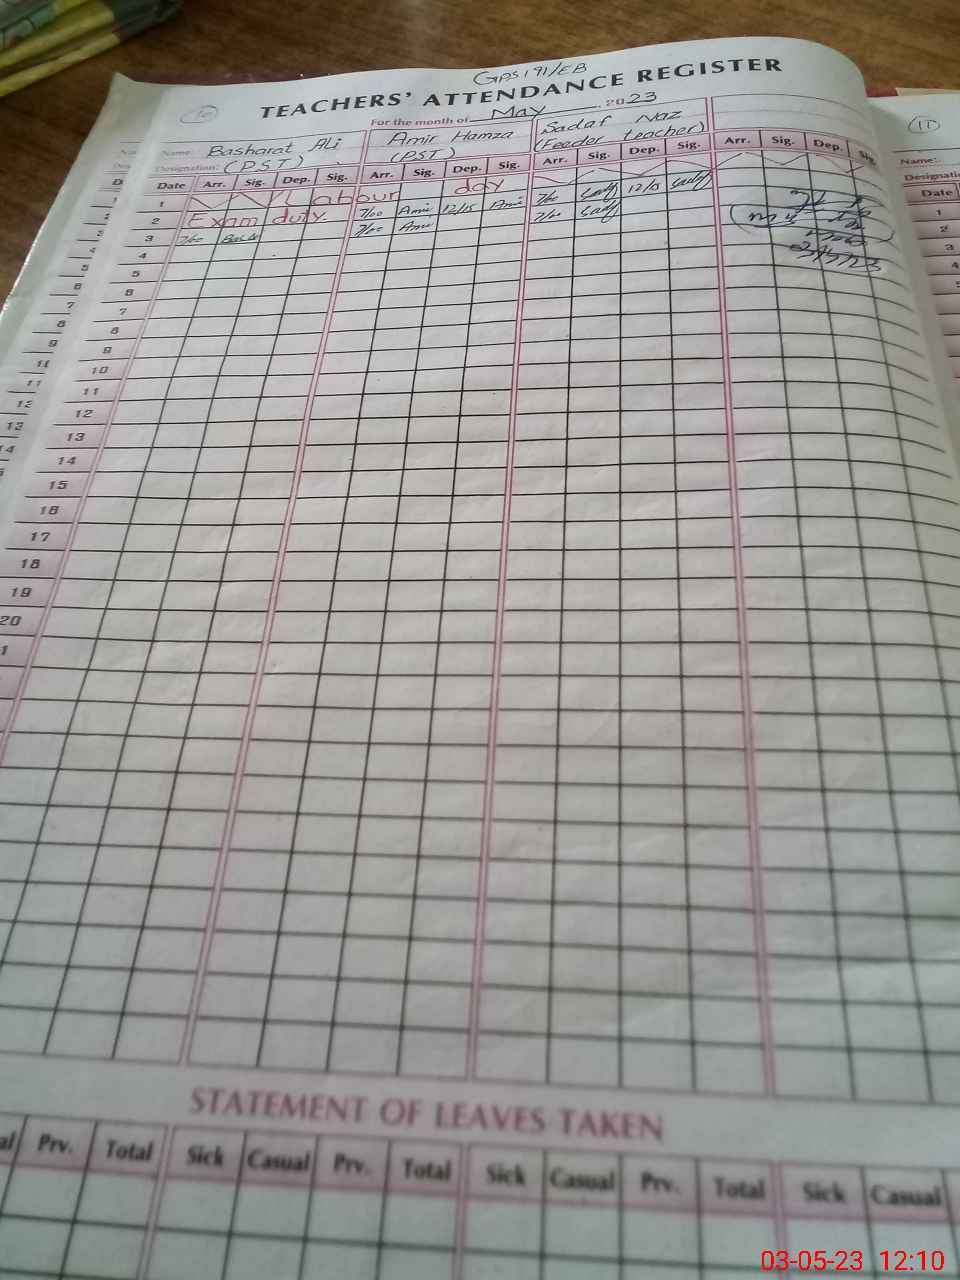 GPS 191/EB
TEACHERS' ATTENDANCE REGISTER
10 For the month of May 2023
Name: Basharat Ali Amir Hamza Sadaf Naz
Designation: (PST) (PST) (Feeder teacher)
Date Arr. Sig. Dep. Sig. Arr. Sig. Dep. Sig. Arr. Sig. Dep. Sig. Arr. Sig. Dep. Sig.
1 Labour day
2 Exam duty 7/00 Amir 12/15 Amir 7/00 Sadaf 12/15 Sadaf
3 7/00 7/00 Amir 7/00 Sadaf
4
5
6
7
8
9
10
11
12
13
14
15
16
17
18
19
20
STATEMENT OF LEAVES TAKEN
Prv. Total Sick Casual Prv. Total Sick Casual Prv. Total Sick Casual
11
Name:
Date
1
2
3
4
5
03-05-23 12:10